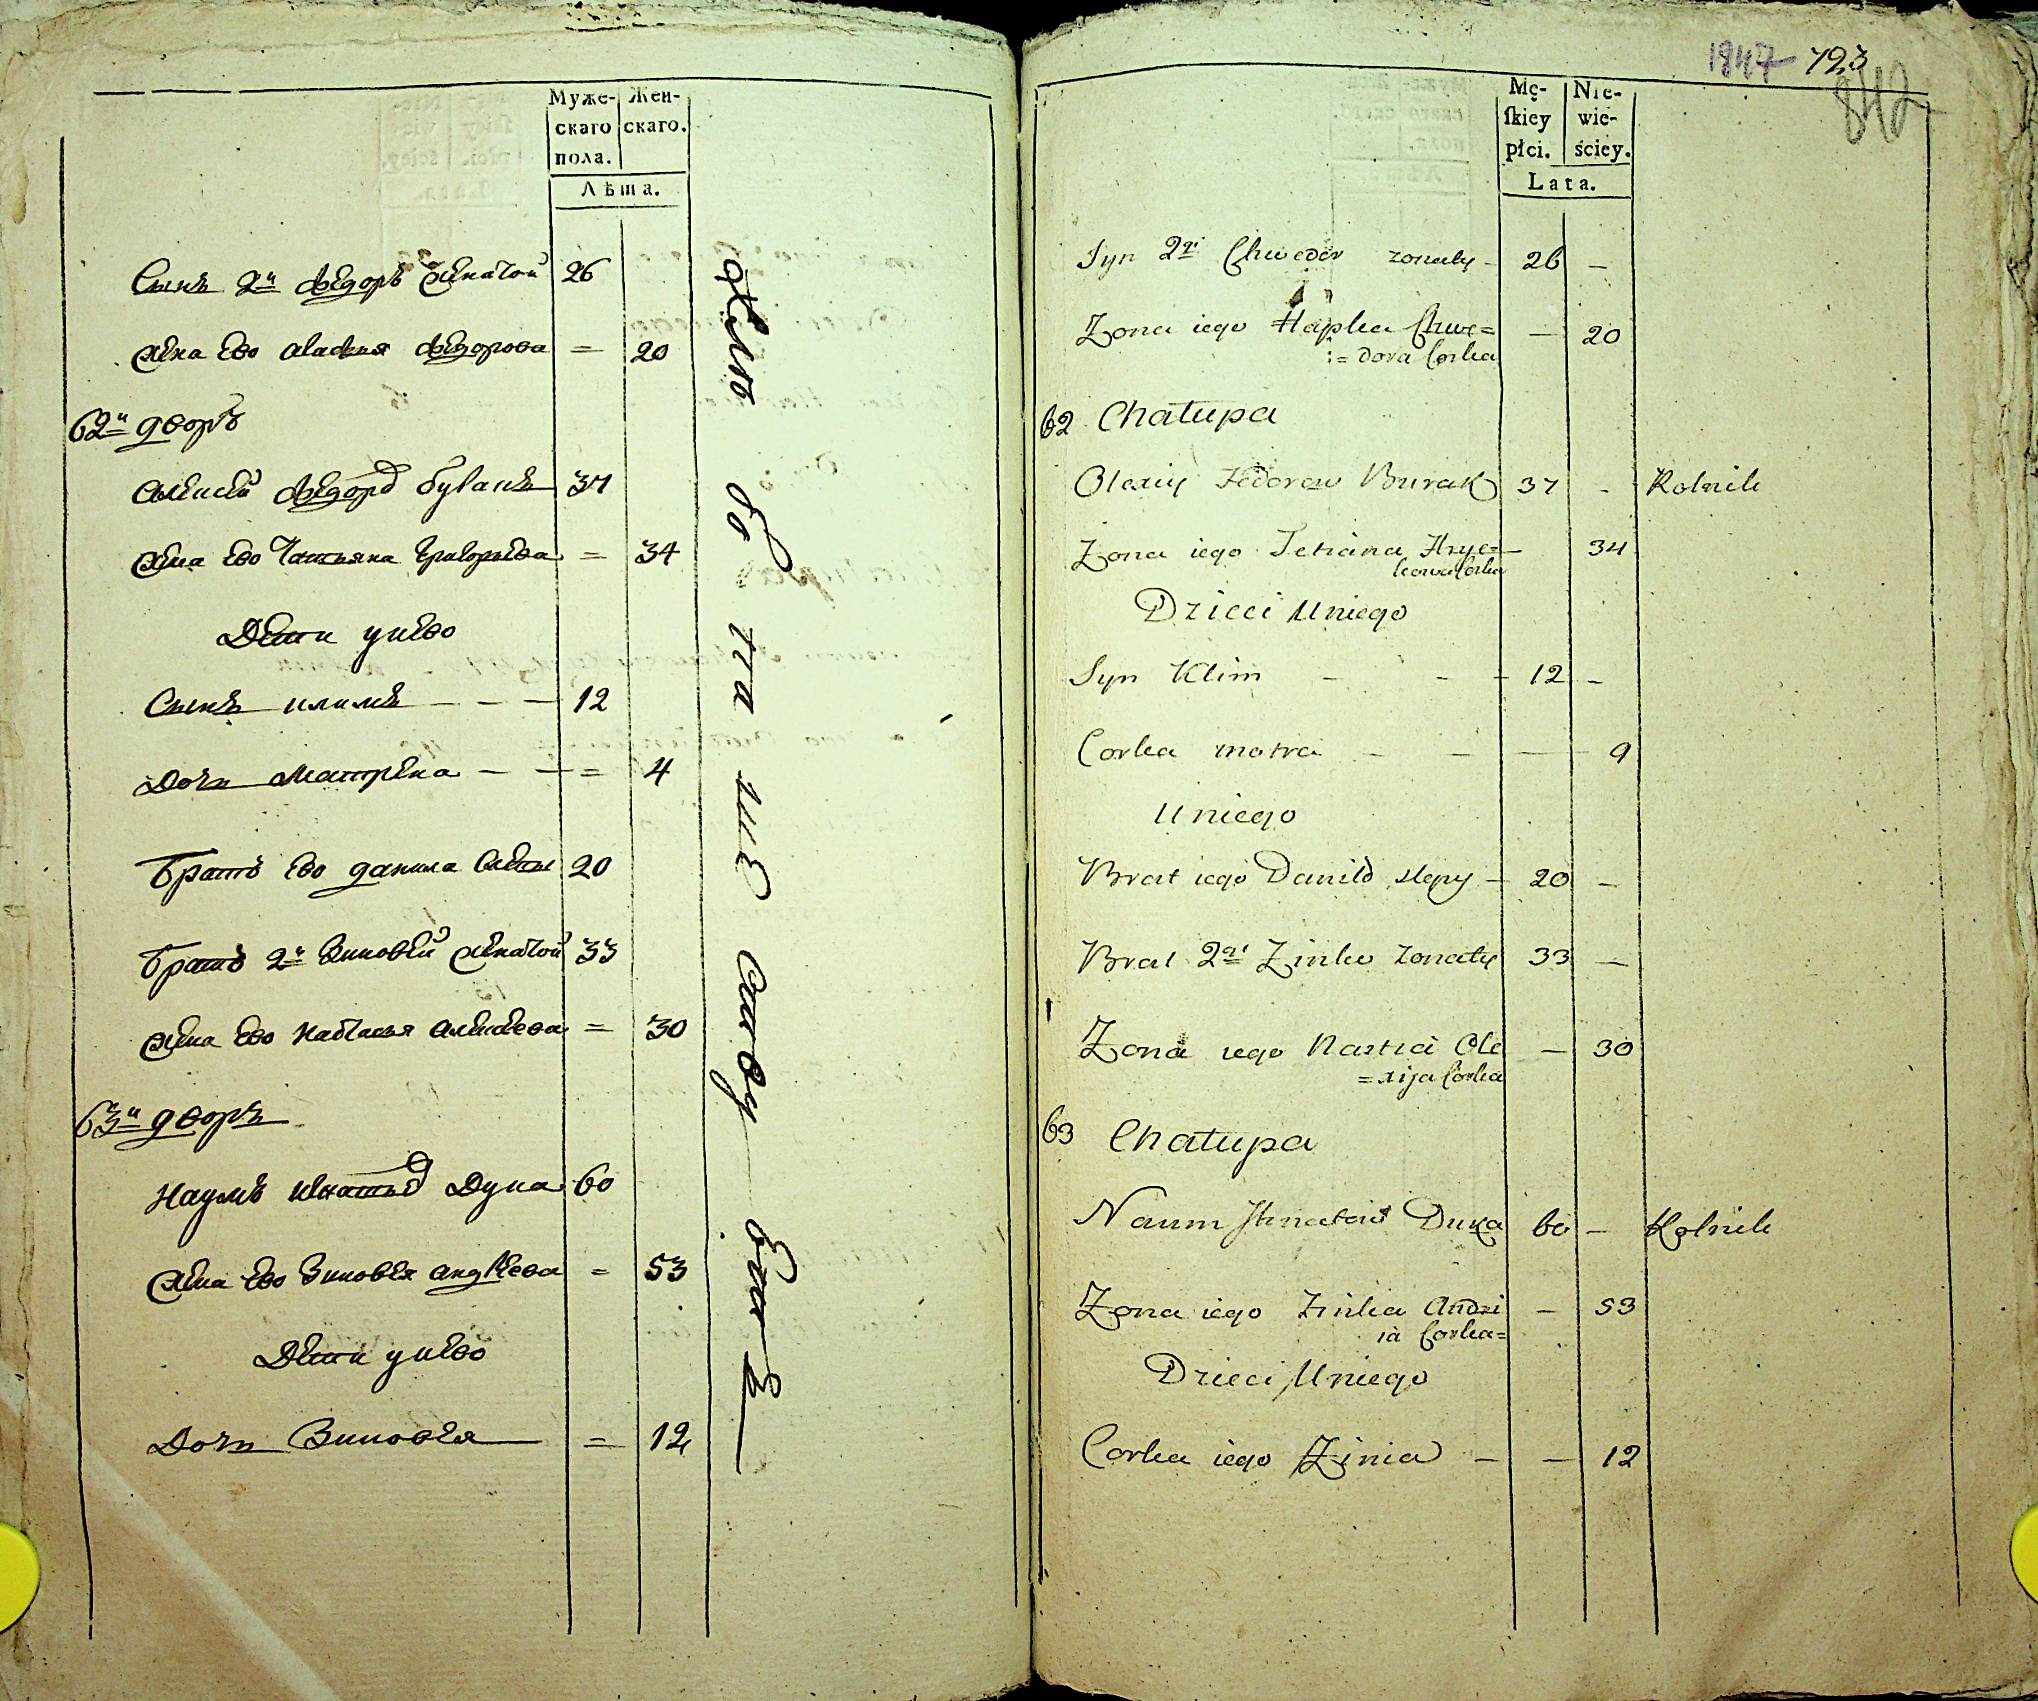 Муже-
скаго
пола.
Жен-
скаго.
Лѣта.
Сынъ 2й Ѳедоръ женатой 26
жена ево Агафия Ѳедорова = 20
62й дворъ
Алексей Ѳедоров Буракъ 37
жена ево Татьяна Григорьева = 34
Дети у нево
Сынъ Климъ - - - 12
Дочь Матрена - - = 4
Братъ ево данила слепы 20
братъ 2й Зиновей женатой 33
жена ево Настасья Алексеева = 30
63й дворъ
Наумъ Игнатьев Дука 60
жена ево Зиновья андреева = 53
Дети у нево
Дочь Зиновья = 12
1847 723
842
Mę-
skiey
płci.
Nie-
wie-
ściey.
Lata.
Syn 2gi Chwedor zonaty - 26 -
Zona iego Hapka Chwe=
:= dora Corka - 20
62 Chałupa
Olexiy Fedorow Burak 37 - Rolnik
Zona iego Tetiana Hryc=
kowa Corka 34
Dzieci Uniego
Syn Klim - - - 12 -
Corka motra - - - 9
Uniego
Brat iego Daniło slepy - 20 -
Brat 2gi Zinko zonaty 33 -
Zona iego Nastia Ole
=xija Corka - 30
63 Chałupa
Naum Ihnatow Duka 60 - Rolnik
Zona iego Zinka Andri
ia Corka= - 53
Dzieci Uniego
Corka iego Zinia - - 12